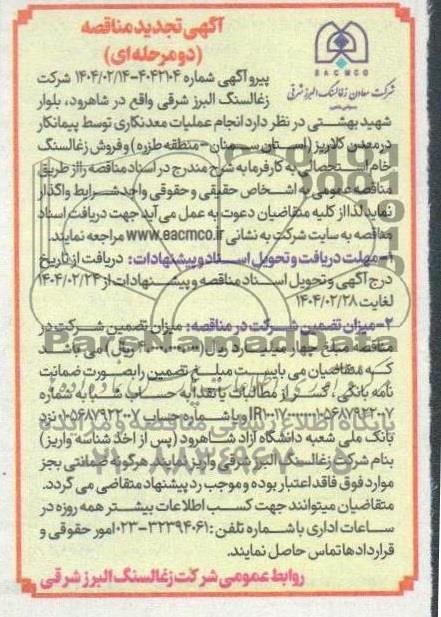 آگهی تجدید مناقصه
(دو مرحله‌ای)
EACMCO
شرکت معادن زغالسنگ البرز شرقی
پیرو آگهی شماره ۴۰۴۲۱۰۴-۱۴۰۴/۰۲/۱۴ شرکت
زغالسنگ البرز شرقی واقع در شاهرود، بلوار
شهید بهشتی در نظر دارد انجام عملیات معدنکاری توسط پیمانکار
در معدن کلاریز (استان سمنان - منطقه طزره) و فروش زغالسنگ
خام استحصالی به کارفرما به شرح مندرج در اسناد مناقصه را از طریق
مناقصه عمومی به اشخاص حقیقی و حقوقی واجد شرایط واگذار
نماید لذا از کلیه متقاضیان دعوت به عمل می آید جهت دریافت اسناد
مناقصه به سایت شرکت به نشانی www.eacmco.ir مراجعه نمایند.
۱- مهلت دریافت و تحویل اسناد و پیشنهادات: دریافت از تاریخ
درج آگهی و تحویل اسناد مناقصه و پیشنهادات از ۱۴۰۴/۰۲/۲۴
لغایت ۱۴۰۴/۰۲/۲۸
۲- میزان تضمین شرکت در مناقصه: میزان تضمین شرکت در
مناقصه مبلغ چهار میلیارد ریال ( ریال) می باشد
که متقاضیان می بایست مبلغ تضمین را بصورت ضمانت
نامه بانکی، کسر از مطالبات یا نقدا به حساب شبا به شماره
و یا شماره حساب ۰۱۰۵۶۸۷۹۲۲۰۰۷ نزد
بانک ملی شعبه دانشگاه آزاد شاهرود (پس از اخذ شناسه واریز)
بنام شرکت زغالسنگ البرز شرقی واریز نمایند هرگونه ضمانتی بجز
موارد فوق فاقد اعتبار بوده و موجب رد پیشنهاد متقاضی می گردد.
متقاضیان میتوانند جهت کسب اطلاعات بیشتر همه روزه در
ساعات اداری با شماره تلفن: ۳۲۳۹۴۰۶۱-۰۲۳ امور حقوقی و
قراردادها تماس حاصل نمایند.
روابط عمومی شرکت زغالسنگ البرز شرقی
ParsNamadData
پایگاه اطلاع رسانی مناقصه و مزایده